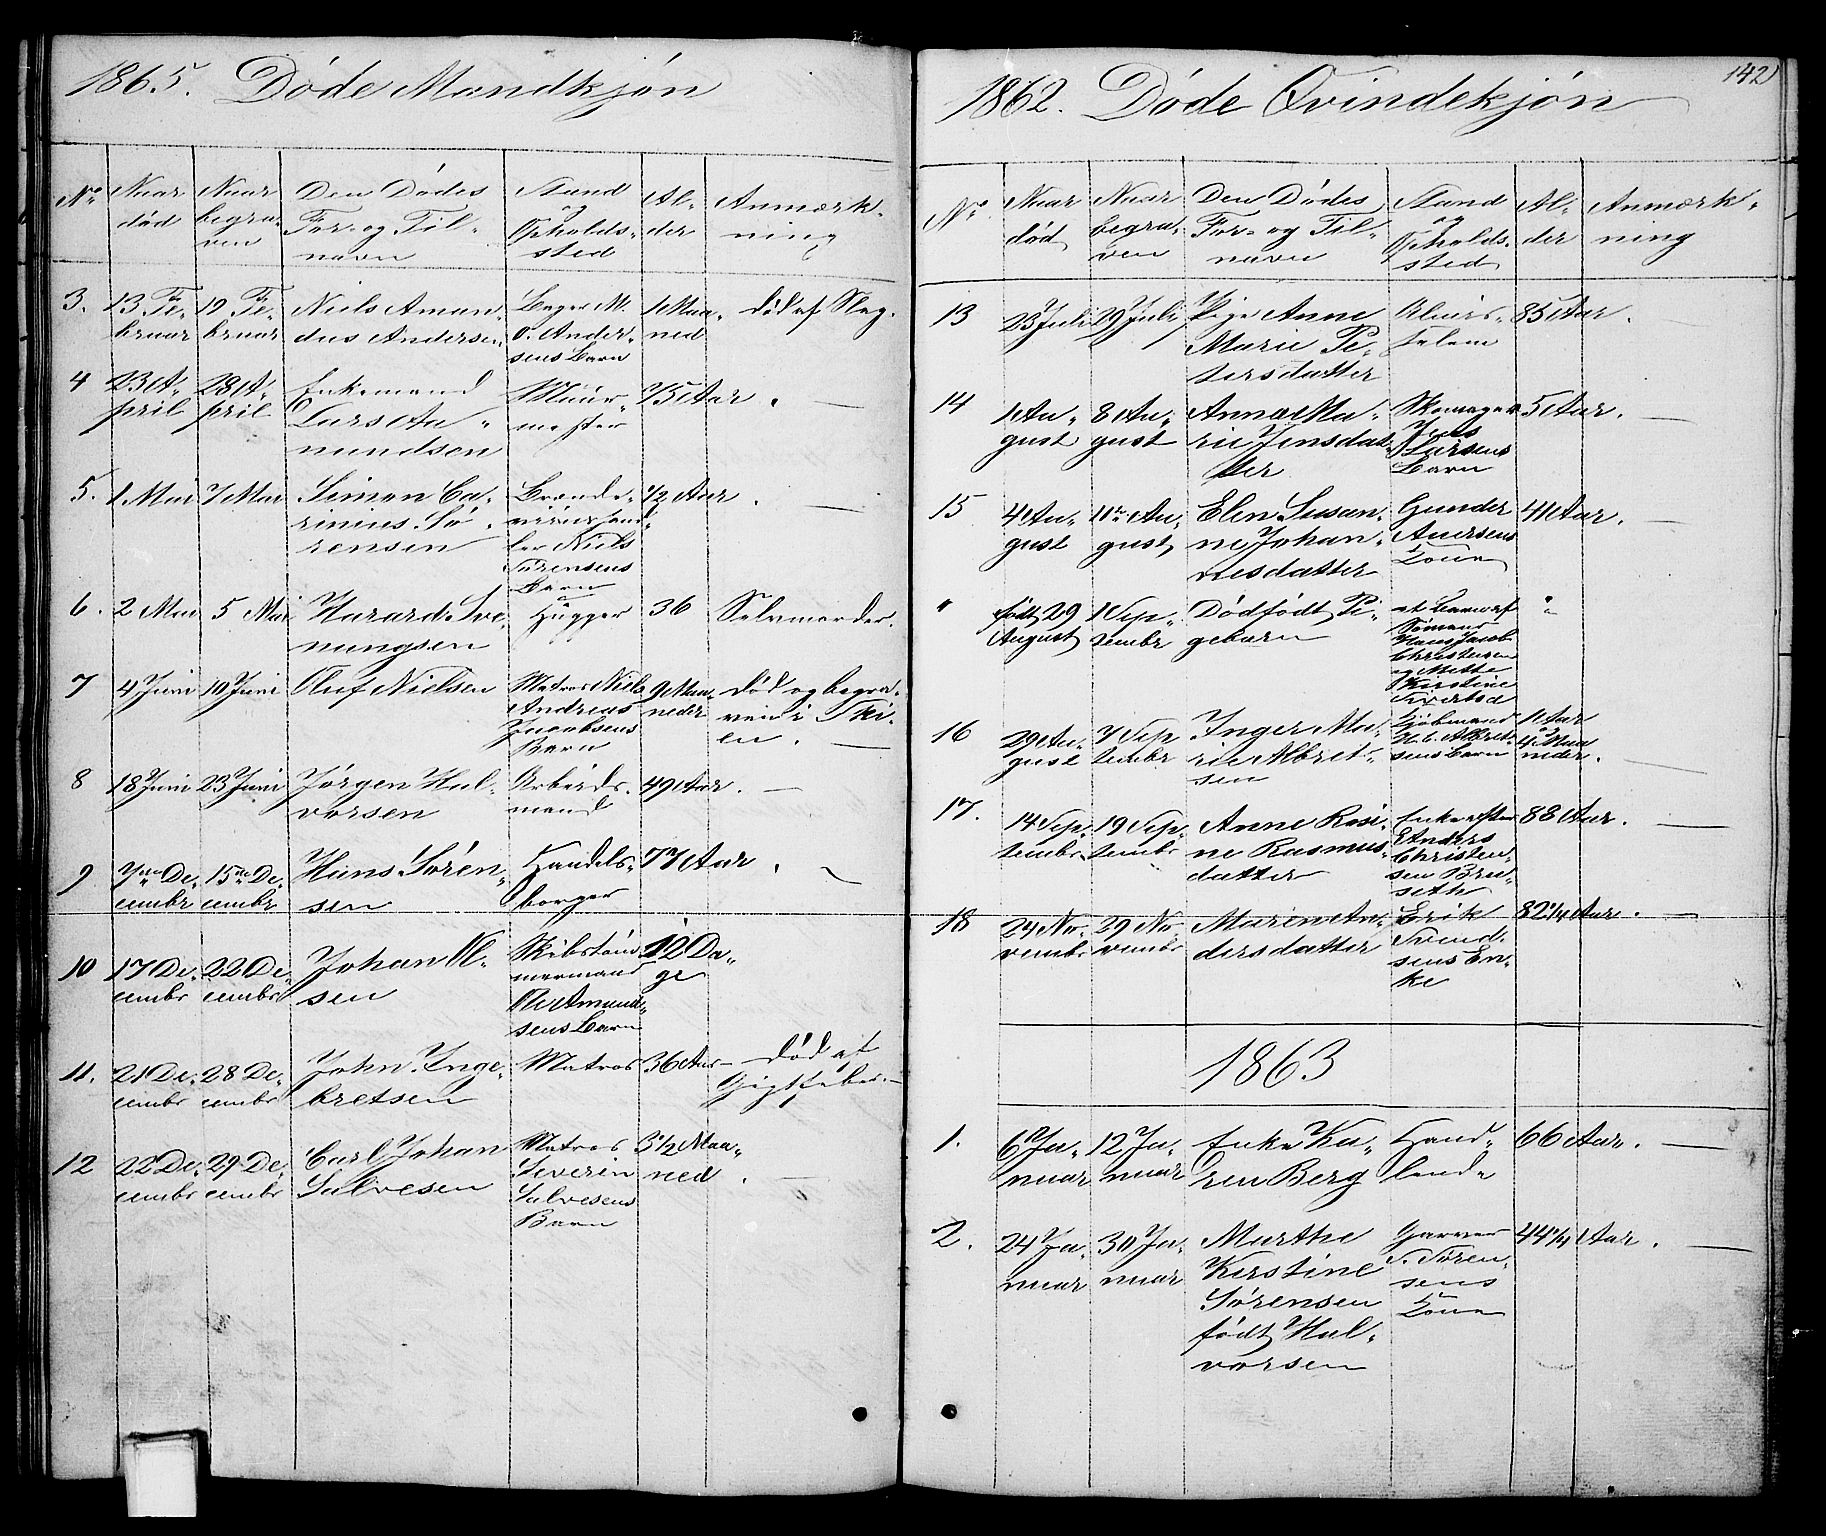 1865. Døde Mandkjøn
No
Naar død
Naar begra- ven
Den Dødes For- og Til- navn
Stand og Opholds- sted
Al- der
Anmærk- ning
3.
13 Fe- bruar
19 Fe- bruar
Niels Aman- dus Andersen
Bager M. O. Ander- sens Barn
1 Maa- ned
død af Slag.
4
23 A- pril
28 A- pril
Enkemand Lars An- mundsen
Muur- mester
75 Aar. —
5.
1 Mai
7 Mai
Simon Ca- rinius Sø- rensen
Niels Sørensens Barn
1/2 Aar. —
6.
2 Mai
5 Mai
Harard Sve- nungsen
Hugger
36
Selvmorder.
7
4 Juni
10 Juni
Oluf Nielsen
Matros Niels Andreas Jacobsens Barn
9 Maa- neder
død og begra- ven i Ski- en. —
8
18 Juni
23 Juni
Jørgen Hal- vorsen
Arbeids- mand
49 Aar. —
9
7de De- cembr
15de De- cembr
Hans Søren- sen
Handels- borger
77 Aar.
10
17 De- cembr
22 De- cembr
Johan Ol- sen
Skibstøm- mermand Ole Amund- sens Barn
12 Da- ge
11.
21 De- cembr
28 De- cembr
John Inge- bretsen
Matros
36 Aar
død af Gigtfeber. —
12
22 De- cembr
29 De- cembr
Carl Johan Salvesen
Matros Severin Salvesens Barn
3 1/2 Maa- ned. —
142
1862. Døde Qvindekjøn
No
Naar død
Naar begra- ven
Den Dødes For- og Til- navn
Stand og Opholds- sted
Al- der
Anmærk- ning
13
23 Juli
29 Juli
Pige Anne Marie Pe- tersdatter
85 Aar.
14
1 Au- gust
8 Au- gust
Anne Ma- rie Jensdat- ter
Skomager Jens Larsens Barn
5 Aar. —
15
4 Au- gust
11te Au- gust
Elen Susan- ne Johan- nesdatter
Gunder Andersens Kone
41 Aar. —
"
født 29 August
1 Sep- tembr
Dødfødt Pi- gebarn
et Barn af Sømand Hans Jacob Christensen og Mette Kirstine
"
16
29 Au- gust
7 Sep- tembr
Inger Ma- rie Albret- sen
Kjøbmand H. C. Albret- sens Barn
1 Aar og 4 Maa- neder. —
17.
14 Sep- tembr
19 Sep- tembr
Anne Rasi- ne Rasmus- datter
Enke efter Anders Christen- sen Bru- seth
88 Aar. —
18
24 No- vembr
29 No- vembr
Maren An- dersdatter
Erik Svend- sens En- ke
82 1/4 Aar. —
1863
1.
6 Ja- nuar
12 Ja- nuar
Enke Ka- ren Berg
Hand- lende
66 Aar. —
2.
24 Ja- nuar
30 Ja- nuar
Marthe Kirstine Sørensen født Hal- vorsen
Garver S. Søren- sens Kone
44 1/4 Aar. —